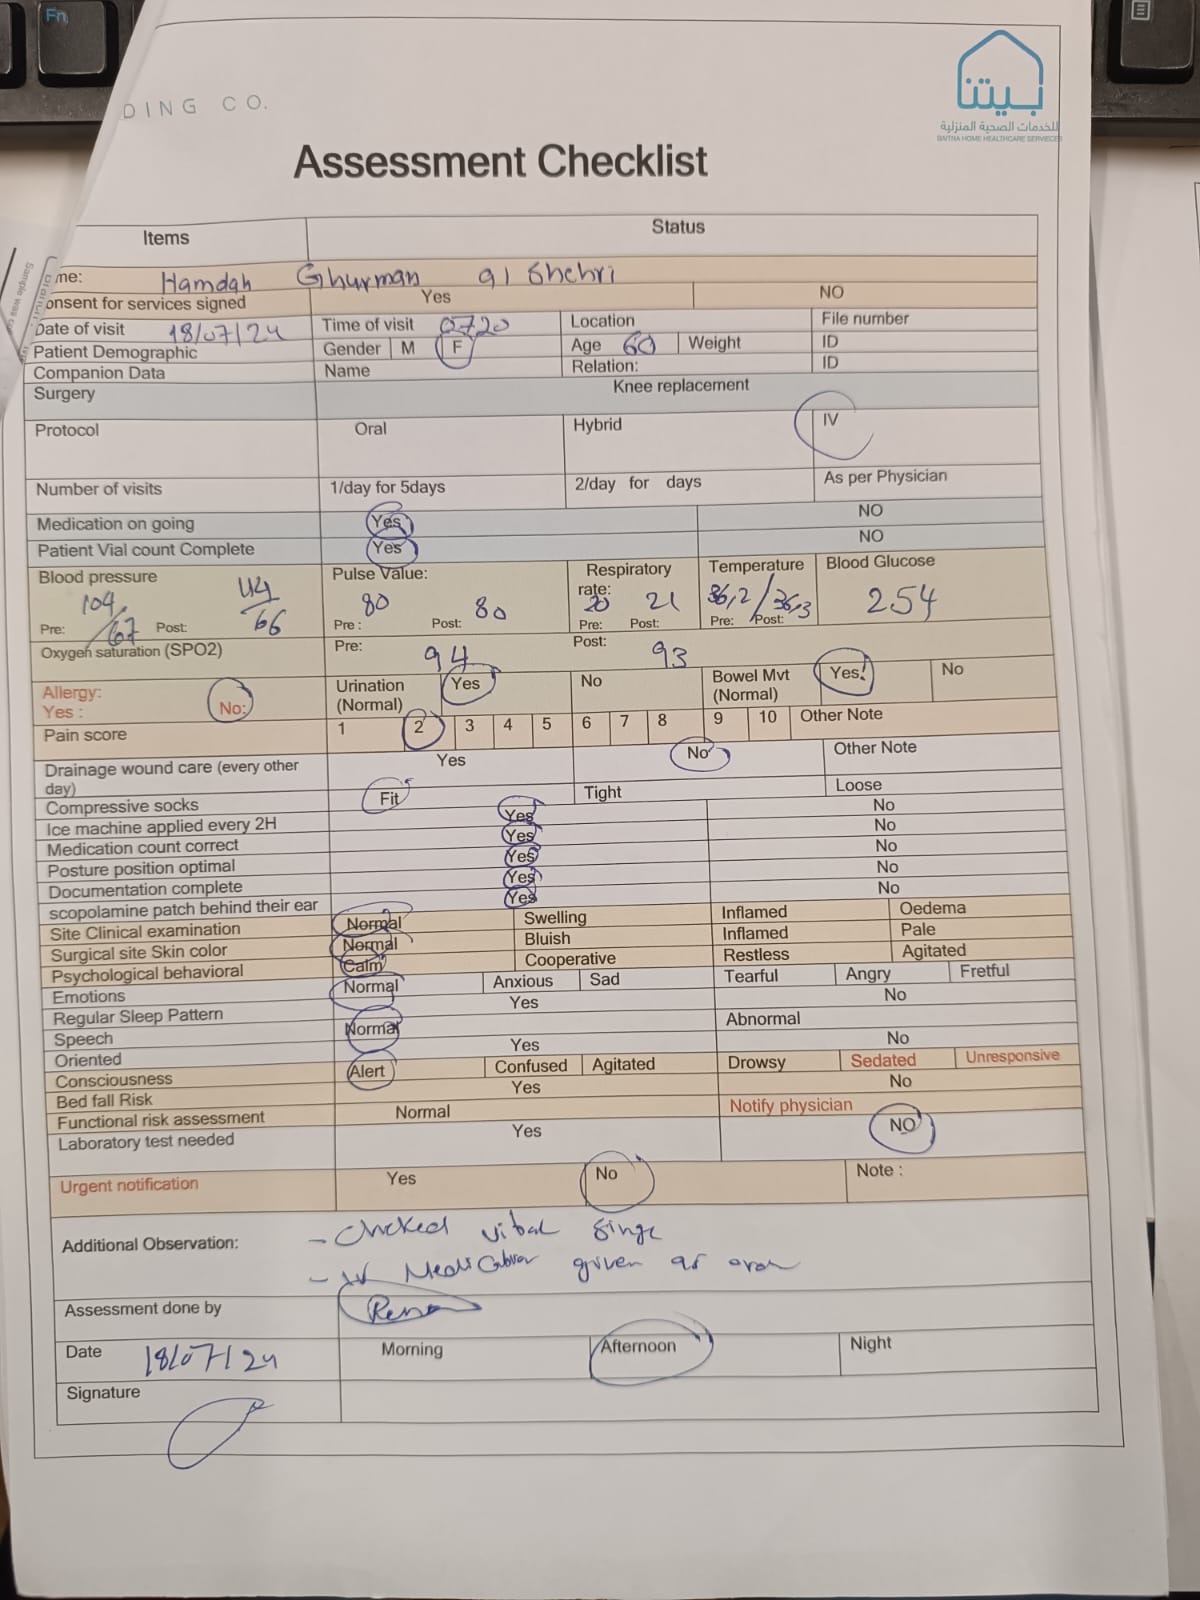 Fn
DING CO.
بيتنا
للخدمات الصحية المنزلية
BAITNA HOME HEALTHCARE SERVIECES
Assessment Checklist
Items Status
me: Hamdah Ghurman al Shehri
onsent for services signed Yes NO
Date of visit 18/07/24 Time of visit 0720 Location File number
Patient Demographic Gender M F Age 60 Weight ID
Companion Data Name Relation: ID
Surgery Knee replacement
Protocol Oral Hybrid IV
Number of visits 1/day for 5days 2/day for days As per Physician
Medication on going Yes NO
Patient Vial count Complete Yes NO
Blood pressure Pulse Value: Respiratory rate: Temperature Blood Glucose
104/67 114/66 80 80 20 21 36,2/36,3 254
Pre: Post: Pre : Post: Pre: Post: Pre: Post:
Oxygen saturation (SPO2) Pre: 94 Post: 93
Allergy: Urination Yes No Bowel Mvt Yes! No
Yes : No: (Normal) (Normal)
Pain score 1 2 3 4 5 6 7 8 9 10 Other Note
Drainage wound care (every other Yes No Other Note
day)
Compressive socks Fit Tight Loose
Ice machine applied every 2H Yes No
Medication count correct Yes No
Posture position optimal Yes No
Documentation complete Yes No
scopolamine patch behind their ear Yes No
Site Clinical examination Normal Swelling Inflamed Oedema
Surgical site Skin color Normal Bluish Inflamed Pale
Psychological behavioral Calm Cooperative Restless Agitated
Emotions Normal Anxious Sad Tearful Angry Fretful
Regular Sleep Pattern Yes No
Speech Normal Abnormal
Oriented Yes No
Consciousness Alert Confused Agitated Drowsy Sedated Unresponsive
Bed fall Risk Yes No
Functional risk assessment Normal Notify physician
Laboratory test needed Yes NO
Urgent notification Yes No Note :
Additional Observation: - Checked vital
- IV given as
Assessment done by
Date 18/07/24 Morning Afternoon Night
Signature